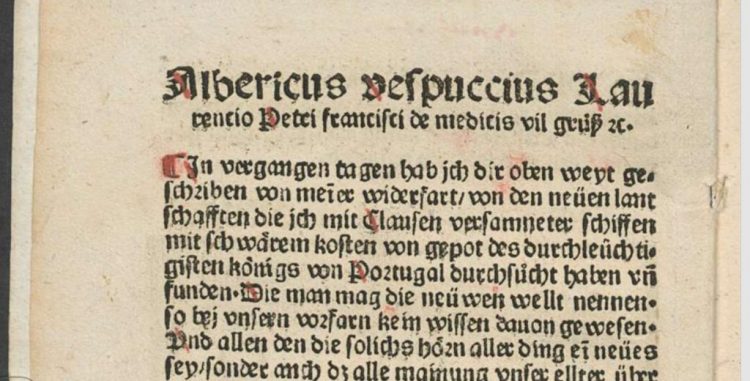 Albericus vespuccius Lau
rencio Petri francisci de medicis vil grüß ⁊c.
In vergangen tagen hab jch dir oben weyt ge⸗
schriben von meīer widerfart/von den neüen lant
schafften die jch mit Clausen versamneter schiffen
mit schwärem kosten von gepot des durchleüchti⸗
gisten königs von Portugal durchsücht haben vñ
funden. Die man mag die neüwen wellt nennen.
so bej vnsern vorfarn kein wissen dauon gewesen.
Vnd allen den die solichs hörn aller ding eī neües
sey/sonder auch dz alle mainung vnser ellter über